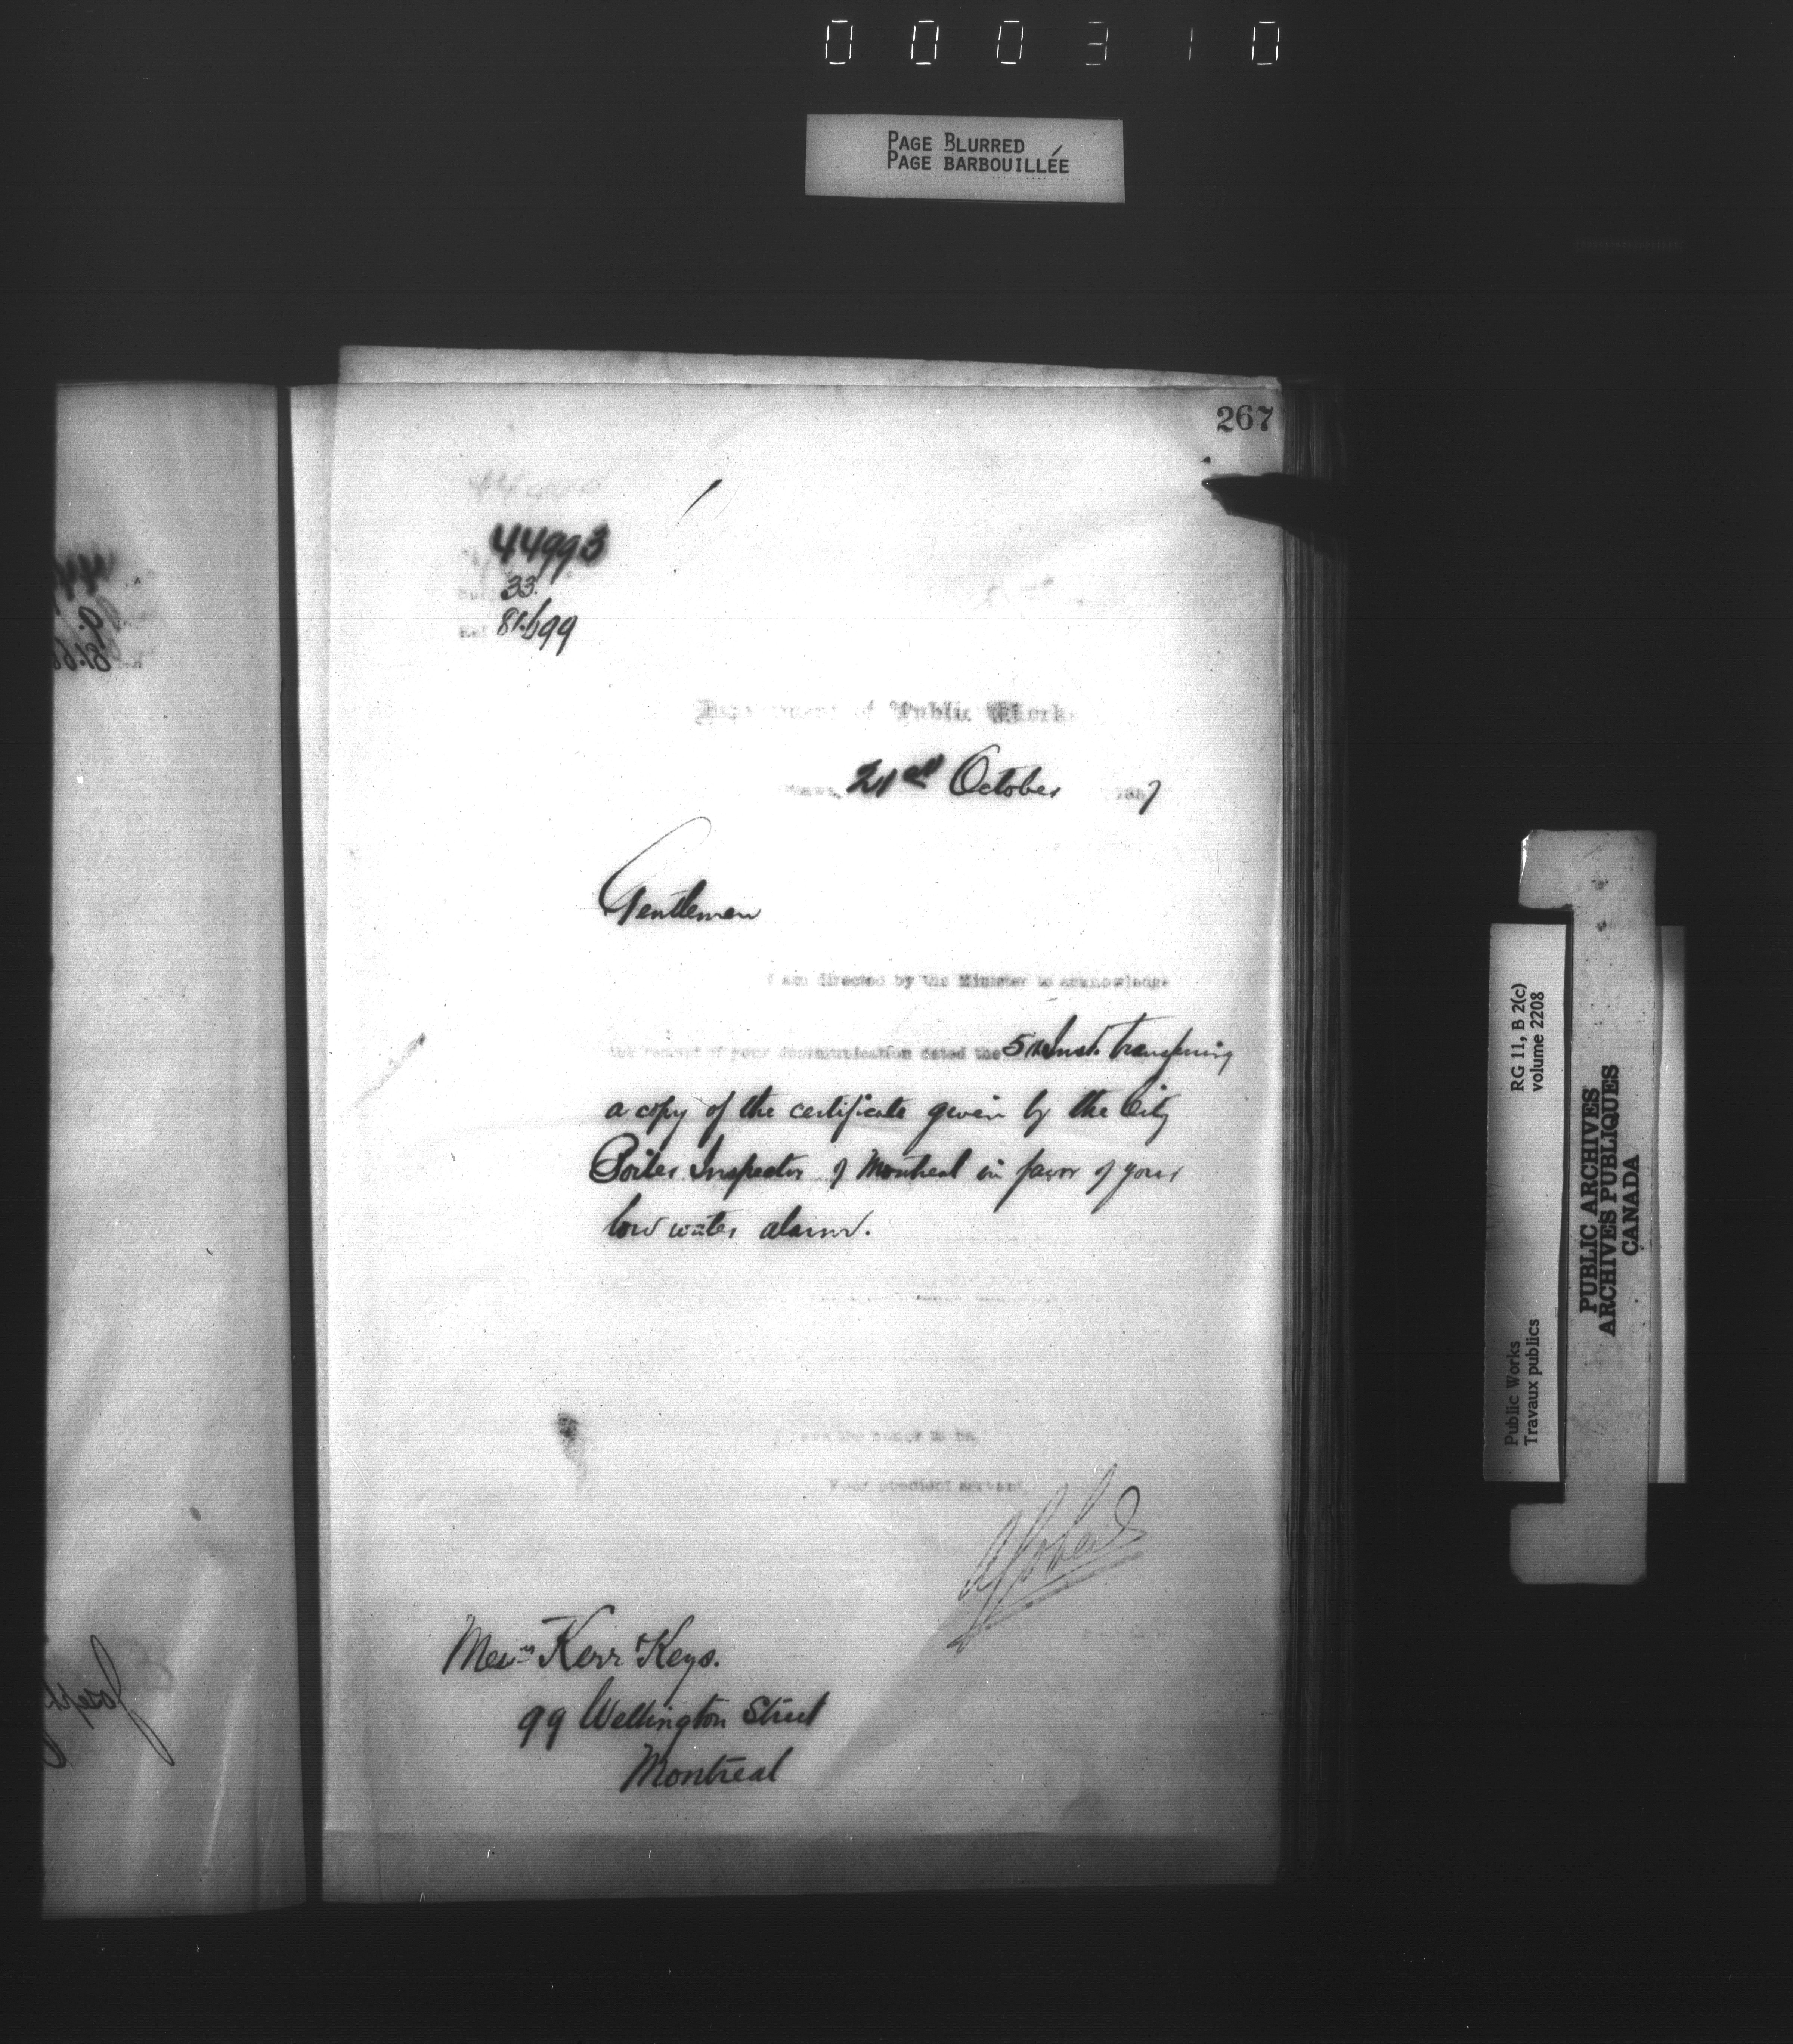 000310
PAGE BLURRED
PAGE BARBOUILLÉE
267
44993
33.
81.699
Department of Public Works
21st October 1887
Gentlemen
I am directed by the Minister to acknowledge
the receipt of your communication dated the 5th Inst. transfering
a copy of the certificate given by the City
Boiler Inspector of Montreal in favor of your
low water alarm.
I have the honor to be
Your obedient servant,
Messrs Kerr & Keys.
99 Wellington Street
Montreal
RG 11, B 2(c)
volume 2208
Public Works
Travaux publics
PUBLIC ARCHIVES
ARCHIVES PUBLIQUES
CANADA